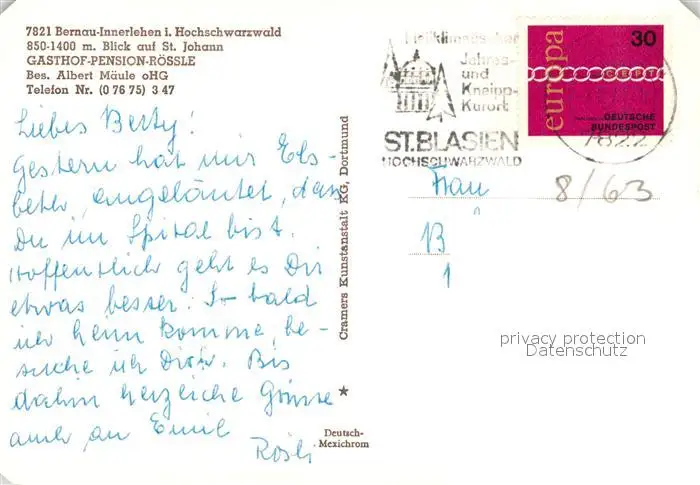 7821 Bernau-Innerlehen i. Hochschwarzwald
850-1400 m. Blick auf St. Johann
GASTHOF-PENSION-RÖSSLE
Bes. Albert Mäule oHG
Telefon Nr. (0 76 75) 3 47
Liebes Berty!
Gestern hat mir Els-
beth angeläutet, dass
Du im Spital bist.
Hoffentlich geht es Dir
etwas besser. So bald
ich heim komme, be-
suche ich Dich. Bis
dahin herzliche Grüsse
auch an Emil
Rösli
Cramers Kunstanstalt KG, Dortmund
Deutsch-
Mexichrom
Heilklimatischer
Jahres-
und
Kneipp-
Kurort
ST. BLASIEN
HOCHSCHWARZWALD
europa
30
CEPT
DEUTSCHE
BUNDESPOST
7822
Frau
B
8/63
privacy protection
Datenschutz